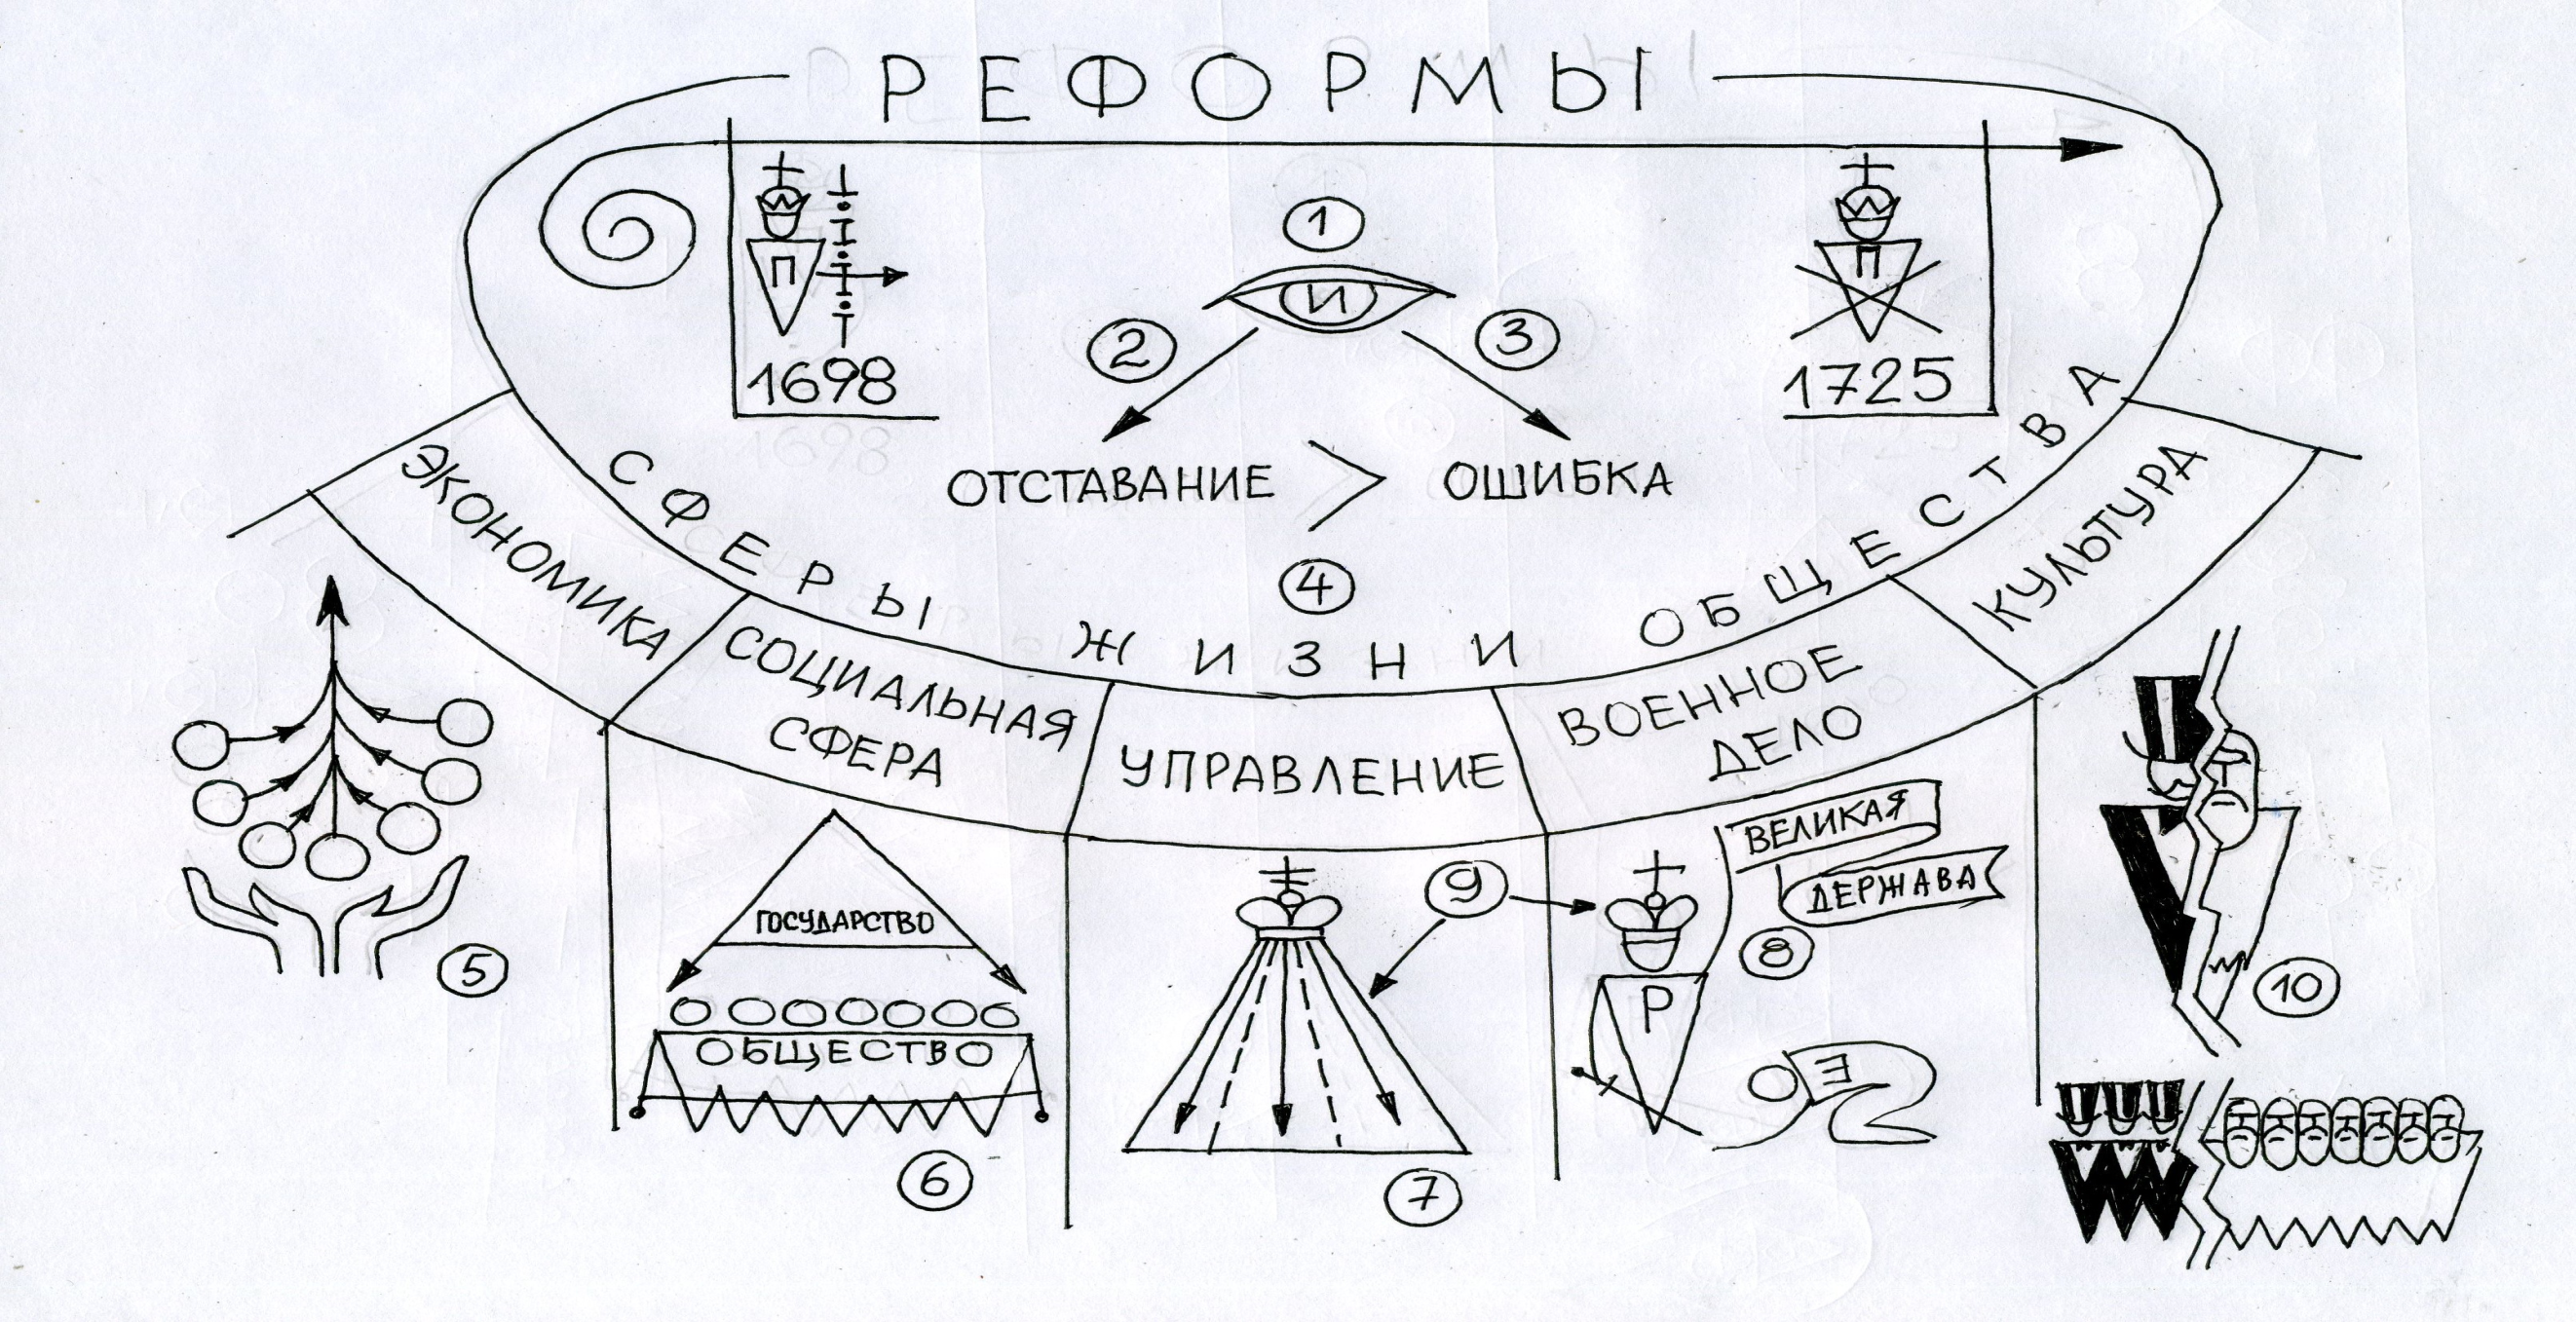 РЕФОРМЫ
П
1698
1
И
2
3
П
1725
ОТСТАВАНИЕ > ОШИБКА
4
СФЕРЫ ЖИЗНИ ОБЩЕСТВА
ЭКОНОМИКА
СОЦИАЛЬНАЯ
СФЕРА
УПРАВЛЕНИЕ
ВОЕННОЕ
ДЕЛО
КУЛЬТУРА
5
ГОСУДАРСТВО
ОБЩЕСТВО
6
7
9
ВЕЛИКАЯ
ДЕРЖАВА
8
Р
Е
10